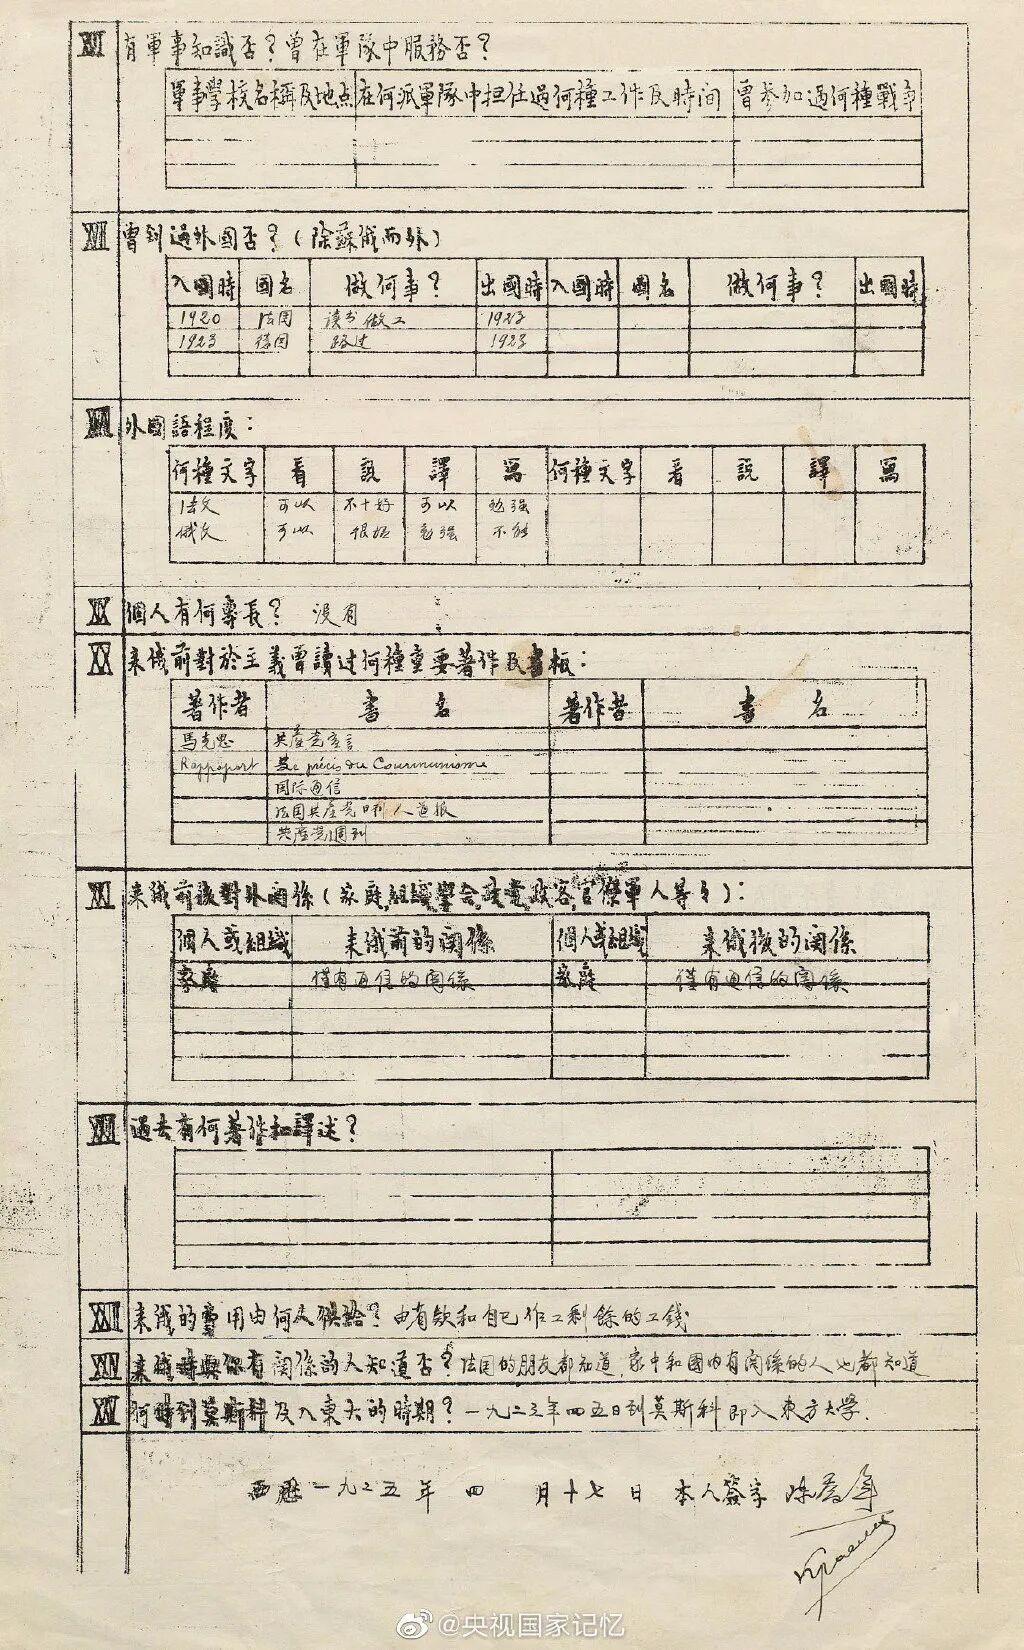 XVI 有軍事知識否？曾在軍隊中服務否？
軍事學校名稱及地点 在何派軍隊中担任過何種工作及時间 曾参加過何種戰争
XVII 曾到過外國否？（除蘇俄而外）
入國時 國名 做何事？ 出國時 入國時 國名 做何事？ 出國時
1920 法国 读书做工 1923
1923 德国 路过 1923
XVIII 外國語程度：
何種文字 看 説 譯 寫 何種文字 看 説 譯 寫
法文 可以 不十好 可以 勉强
俄文 可以 很坏 勉强 不能
XIX 個人有何專長？ 没有
XX 来俄前對於主義曾讀过何種重要著作及書板：
著作者 書名 著作者 書名
馬克思 共產党宣言
Rappoport précis du Communisme
国际通信
法国共產党 人道报
共產党週刊
XXI 来俄前後對外関係（家庭，組織，學会，政黨，政客，官僚軍人等々）：
個人或組織 来俄前的関係 個人或組織 来俄後的関係
家庭 僅有通信的関係 家庭 僅有通信的関係
XXII 過去有何著作和譯述？
XXIII 来俄的費用由何人供給？ 由有欵和自已作工剩餘的工錢
XXIV 来俄時與你有関係的人知道否？ 法国的朋友都知道，家中和國内有関係的人也都知道
XXV 何時到莫斯科及入東大的時期？ 一九二三年四五日到莫斯科即入東方大學.
西歷一九二五年 四 月十七日 本人簽字 陈喬年
@央视国家记忆